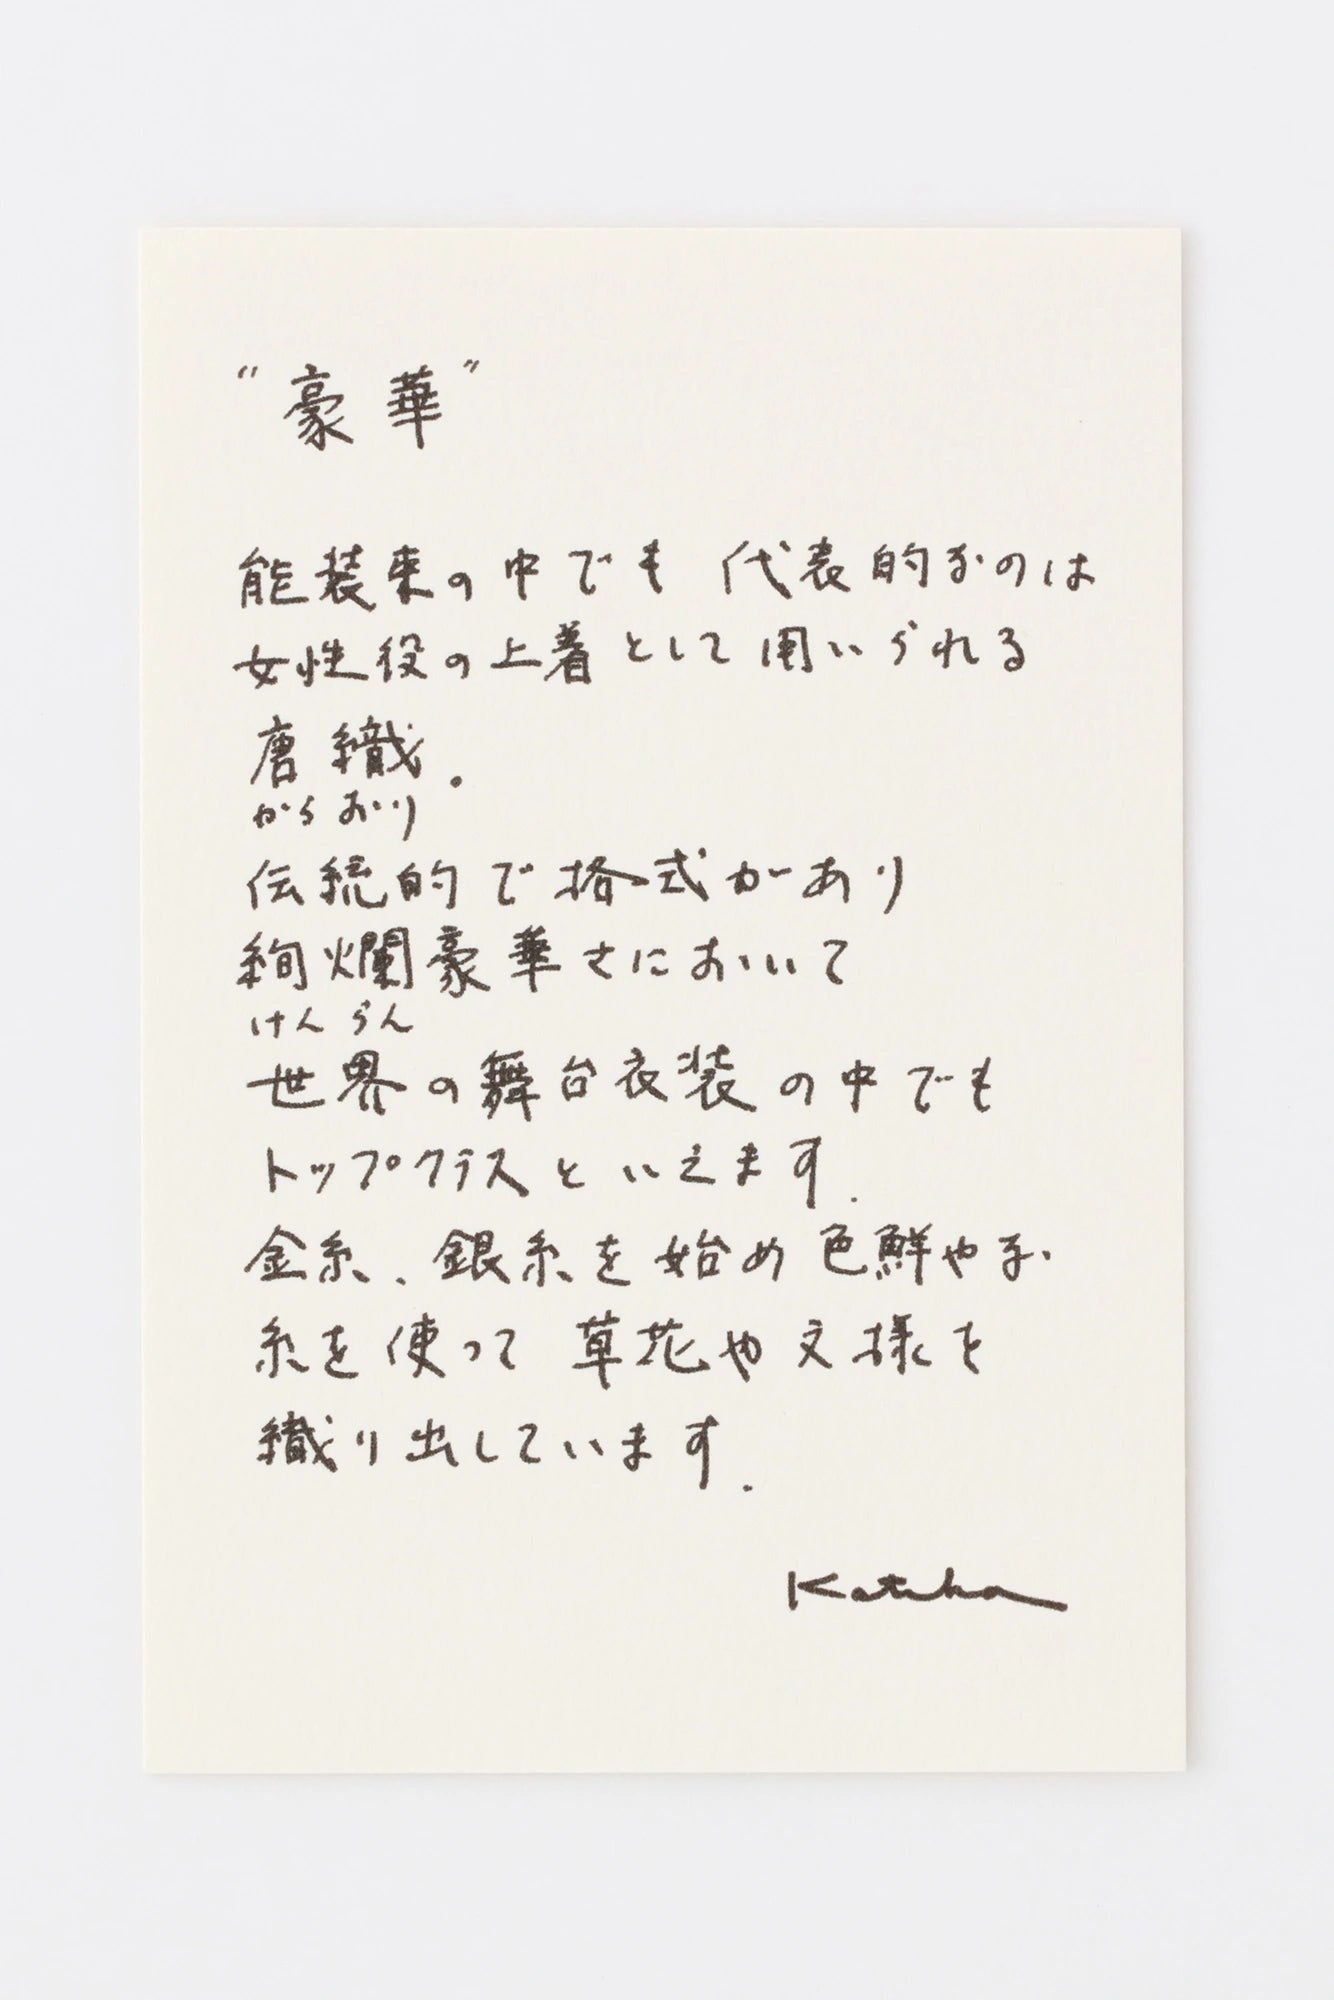 "豪華"
能装束の中でも 代表的なのは
女性役の上着として用いられる
唐織.
からおり
伝統的で格式があり
絢爛豪華さにおいて
けんらん
世界の舞台衣装の中でも
トップクラスといえます.
金糸、銀糸を始め色鮮やかな
糸を使って草花や文様を
織り出しています.